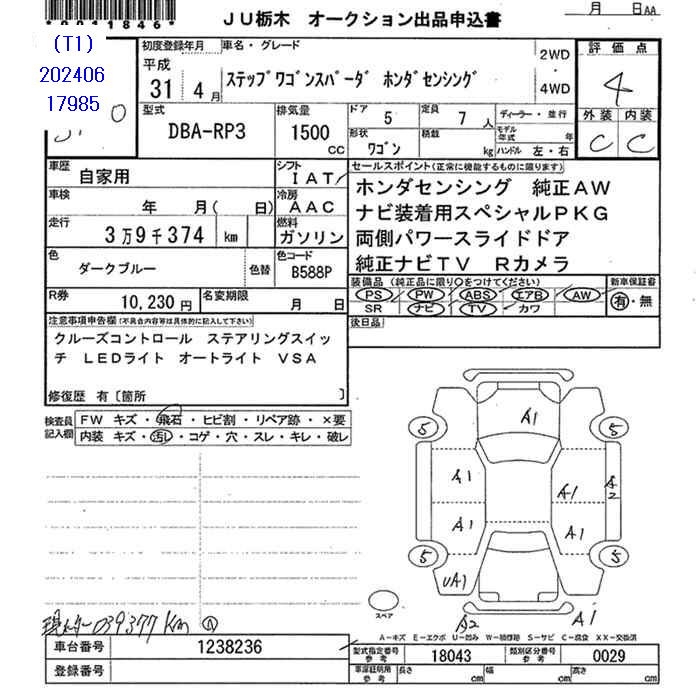 *0011846*
月 日 AA
JU栃木 オークション出品申込書
(T1)
202406
17985
初度登録年月 車名・グレード
平成
31 4月
ステップワゴンスパーダ ホンダセンシング
2WD
・
4WD
評価点
4
外装 内装
C C
型式
DBA-RP3
排気量
1500
CC
ドア 5
定員 7人
形状 ワゴン
積載 kg
ディーラー・並行
モデル年式 年
ハンドル 左・右
車歴 自家用
シフト IAT
車検 年 月( 日)
冷房 AAC
走行 3万9千374 km
燃料 ガソリン
色 ダークブルー 色替
色コード B588P
R券 10,230円
名変期限 月 日
セールスポイント(正常に機能するものに限ります)
ホンダセンシング 純正AW
ナビ装着用スペシャルPKG
両側パワースライドドア
純正ナビTV Rカメラ
装備品(純正品に限り○をつけてください)
PS PW ABS エアB AW
SR ナビ TV カワ
新車保証書
有・無
後日品
注意事項申告欄(不具合内容等は具体的に記入して下さい)
クルーズコントロール ステアリングスイッ
チ LEDライト オートライト VSA
修復歴 有〔箇所 〕
検査員記入欄
FW キズ・飛石・ヒビ割・リペア跡・×要
内装 キズ・汚レ・コゲ・穴・スレ・キレ・破レ
A1
5 5
A1
A1 A2
A1 A1
5 5
UA1
スペア
A2 A1
039377 Km
A-キズ E-エクボ U-凹み W-補修跡 S-サビ C-腐食 XX-交換済
車台番号 1238236
登録番号
型式指定番号 参考 18043
類別区分番号 参考 0029
車庫証明用 参考 長さ cm 幅 cm 高さ cm